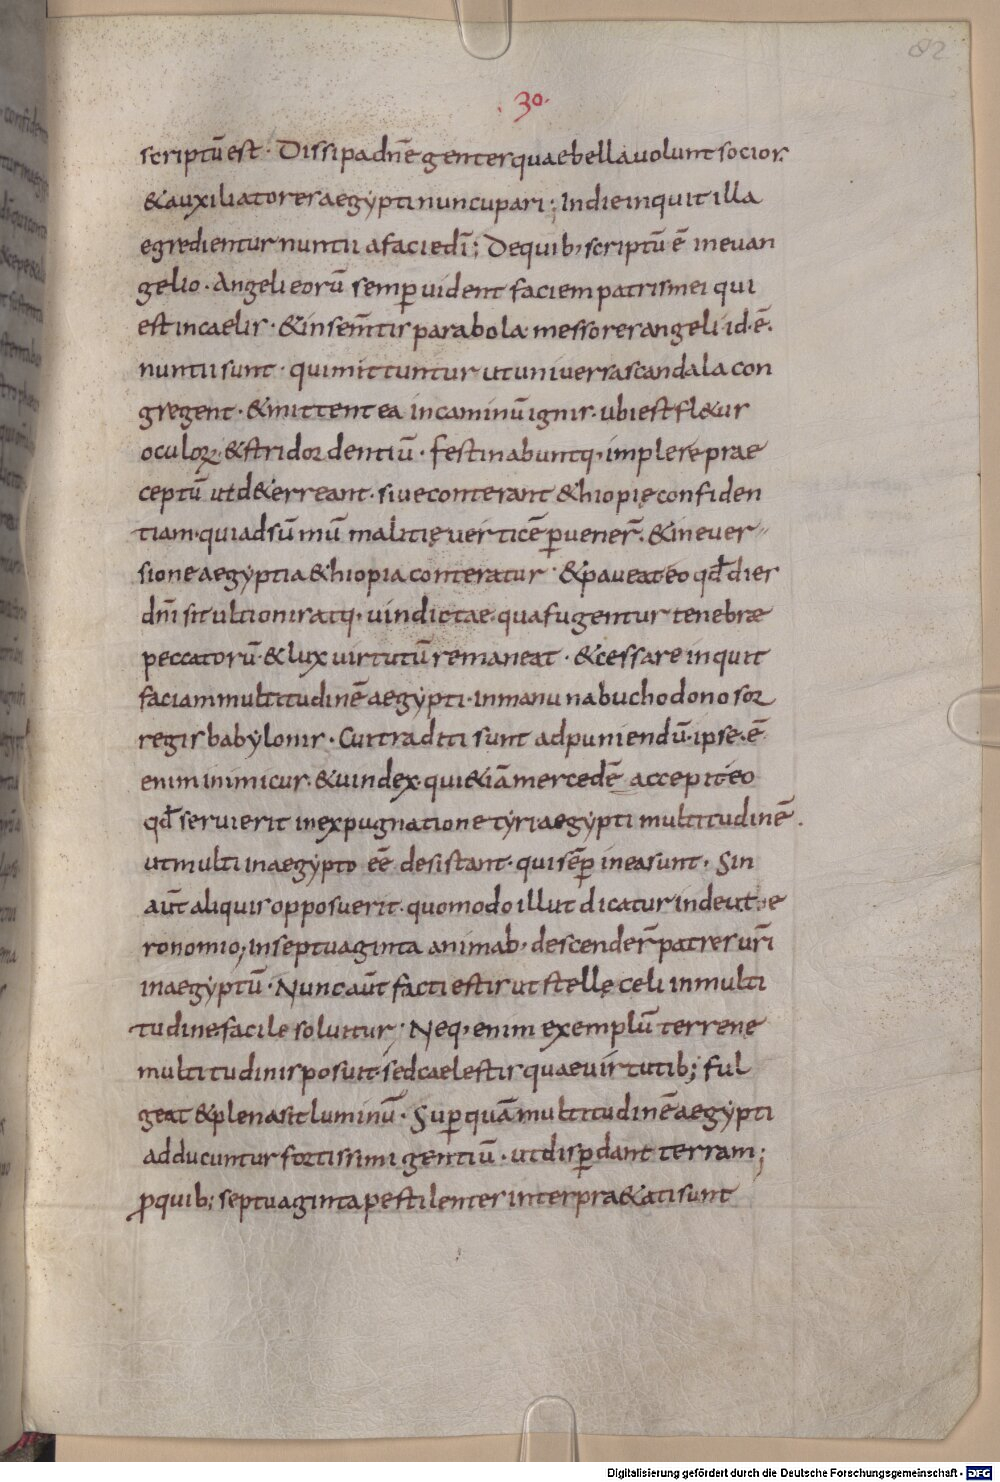 82
· 30 ·
scriptū est · Dissipa dn̄e gentes quae bella uolunt socios
& auxiliatores aegypti nuncupari; In die inquit illa
egredientur nuntii a facie dī; De quib; scriptū ē in euan
gelio · Angeli eorū semp uident faciem patris mei qui
est in caelis · & in sem̄tis parabola messores angeli id · ē ·
nuntii sunt · qui mittuntur ut uniuersa scandala con
gregent · & mittent ea in caminū ignis · ubi est fl&us
oculoꝝ · & stridor dentiū · Festinabuntq; implere prae
ceptū ut d&erreant · siue conterant &hiopię confiden
tiam · qui ad sūmū malitię uerticē ꝑuener̄ · & in euer
sione aegyptia &hiopia conteratur · & paueat eo qd̄ dies
dn̄i sit ultionis atq; uindictae · qua fugentur tenebræ
peccatorū · & lux uirtutū remaneat · & cessare inquit
faciam multitudinē aegypti · in manu nabuchodonosor
regis babylonis · Cui traditi sunt ad puniendū · ipse · ē
enim inimicus · & uindex · qui &iā mercedē accepit eo
qd̄ seruierit in expugnatione tyri aegypti multitudinē ·
ut multi in aegypto eē desistant · qui sēꝑ in ea sunt · Sin
aūt aliquis opposuerit · quomodo illut dicatur in deute
ronomio; In septuaginta animab; descender̄ patres ur̄i
in aegyptū · Nunc aūt facti estis ut stellę celi in multi
tudine facile soluitur · Neq; enim exemplū terrene
multitudinis posuit · sed caelestis quae uirtutib; ful
geat & plena sit luminū · Suꝑ quā multitudinē aegypti
adducuntur fortissimi gentiū · ut disꝑdant terram;
ꝓ quib; septuaginta pestilentes interpra&ati sunt
Digitalisierung gefördert durch die Deutsche Forschungsgemeinschaft - DFG